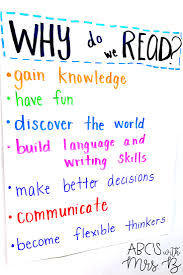 WHY do we READ?
• gain knowledge
• have fun
• discover the world
• build language and
writing skills
• make better decisions
• communicate
• become flexible thinkers
ABCS with
Mrs B